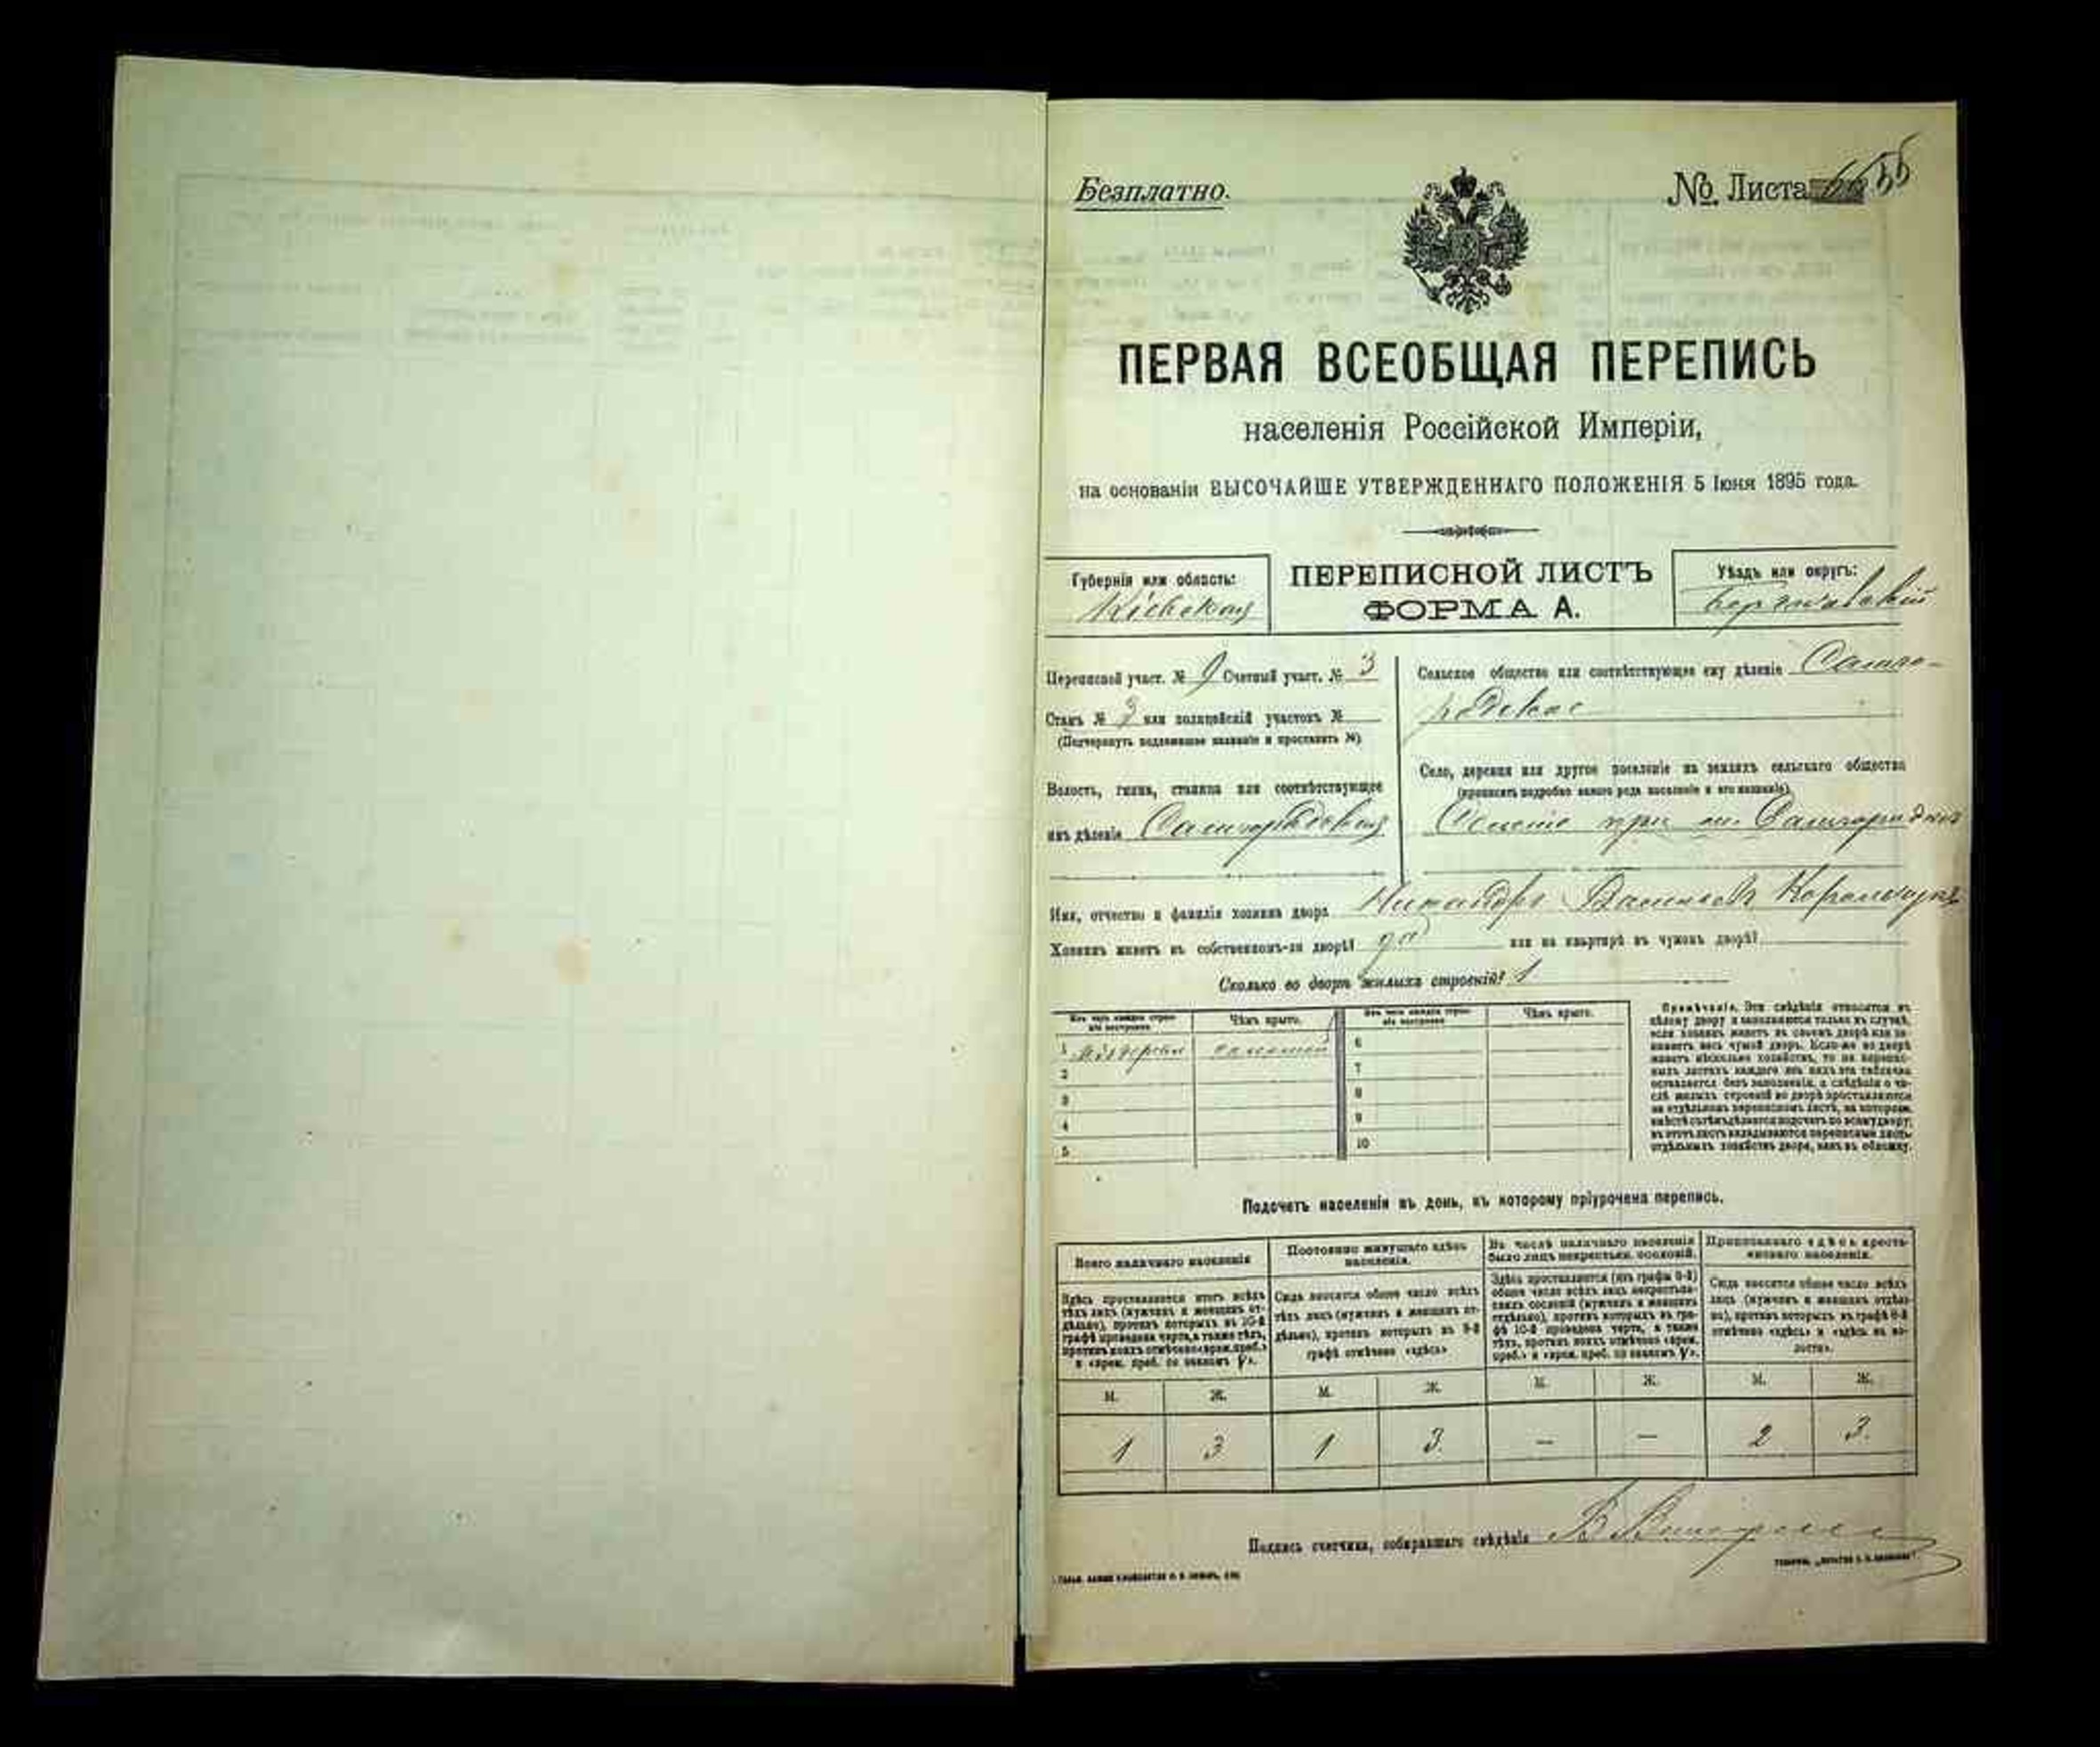 Безплатно.
№ Листа 55
ПЕРВАЯ ВСЕОБЩАЯ ПЕРЕПИСЬ
населенія Россійской Имперіи,
на основаніи ВЫСОЧАЙШЕ УТВЕРЖДЕННАГО ПОЛОЖЕНІЯ 5 Іюня 1895 года.
Губернія или область:
Кіевская
ПЕРЕПИСНОЙ ЛИСТЪ
ФОРМА А.
Уѣздъ или округъ:
Бердичевскій
Переписной участ. № 9 Счетный участ. № 3
Станъ № 3 или полицейскій участокъ №
(Подчеркнуть подлежащее названіе и проставить №)
Волость, гмина, станица или соотвѣтствующее
имъ дѣленіе Самгородская
Сельское общество или соотвѣтствующее ему дѣленіе Самго-
родское
Село, деревня или другое поселеніе на земляхъ сельскаго общества
(прописать подробно какого рода поселеніе и его названіе)
при м. Самгородкѣ
Имя, отчество и фамилія хозяина двора Никандръ Васильевъ Корольчукъ
Хозяинъ живетъ въ собственномъ-ли дворѣ? да или на квартирѣ въ чужомъ дворѣ?
Сколько во дворѣ жилыхъ строеній? 1
Изъ чего каждое строе-
ніе построено.
Чѣмъ крыто.
Изъ чего каждое строе-
ніе построено.
Чѣмъ крыто.
1 соломой
2
3
4
5
6
7
8
9
10
Примѣчаніе. Эти свѣдѣнія относятся къ
цѣлому двору и заполняются только въ случаѣ,
если хозяинъ живетъ въ своемъ дворѣ или за-
нимаетъ весь чужой дворъ. Если-же во дворѣ
живетъ нѣсколько хозяйствъ, то на перепис-
ныхъ листахъ каждаго изъ нихъ эта табличка
оставляется безъ заполненія, а свѣдѣнія о чи-
слѣ жилыхъ строеній во дворѣ проставляются
на отдѣльномъ переписномъ листѣ, на которомъ
вмѣстѣ съ тѣмъ дѣлается подсчетъ по всему двору;
въ этотъ листъ вкладываются переписные листы
отдѣльныхъ хозяйствъ двора, какъ въ обложку.
Подсчетъ населенія въ день, къ которому пріурочена перепись.
Всего наличнаго населенія
Здѣсь проставляется итогъ всѣхъ
тѣхъ лицъ (мужчинъ и женщинъ от-
дѣльно), противъ которыхъ въ 10-й
графѣ проведена черта, а также тѣхъ,
противъ коихъ отмѣчено «врем. преб.»
и «врем. преб. со знакомъ V».
Постоянно живущаго здѣсь
населенія.
Сюда вносится общее число всѣхъ
тѣхъ лицъ (мужчинъ и женщинъ от-
дѣльно), противъ которыхъ въ 9-й
графѣ отмѣчено «здѣсь»
Въ числѣ наличнаго населенія
было лицъ некрестьян. сословій.
Здѣсь проставляется (изъ графы 6-й)
общее число всѣхъ лицъ некрестьян-
скихъ сословій (мужчинъ и женщинъ
отдѣльно), противъ которыхъ въ гра-
фѣ 10-й проведена черта, а также
тѣхъ, противъ коихъ отмѣчено «врем.
преб.» и «врем. преб. со знакомъ V».
Приписаннаго здѣсь кресть-
янскаго населенія.
Сюда вносится общее число всѣхъ
лицъ (мужчинъ и женщинъ отдѣль-
но), противъ которыхъ въ графѣ 8-й
отмѣчено «здѣсь» и «здѣсь въ во-
лости».
М. Ж. М. Ж. М. Ж. М. Ж.
1 3 1 3. — — 2 3.
Подпись счетчика, собиравшаго свѣдѣнія